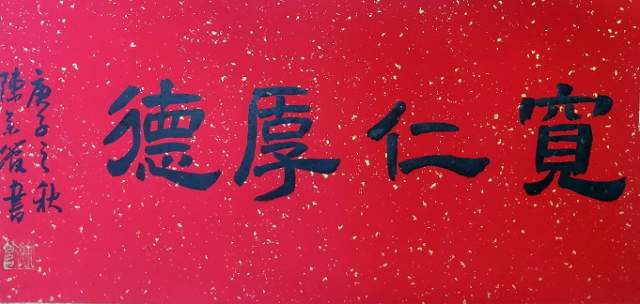 寬仁厚德
庚子之秋
陳 書